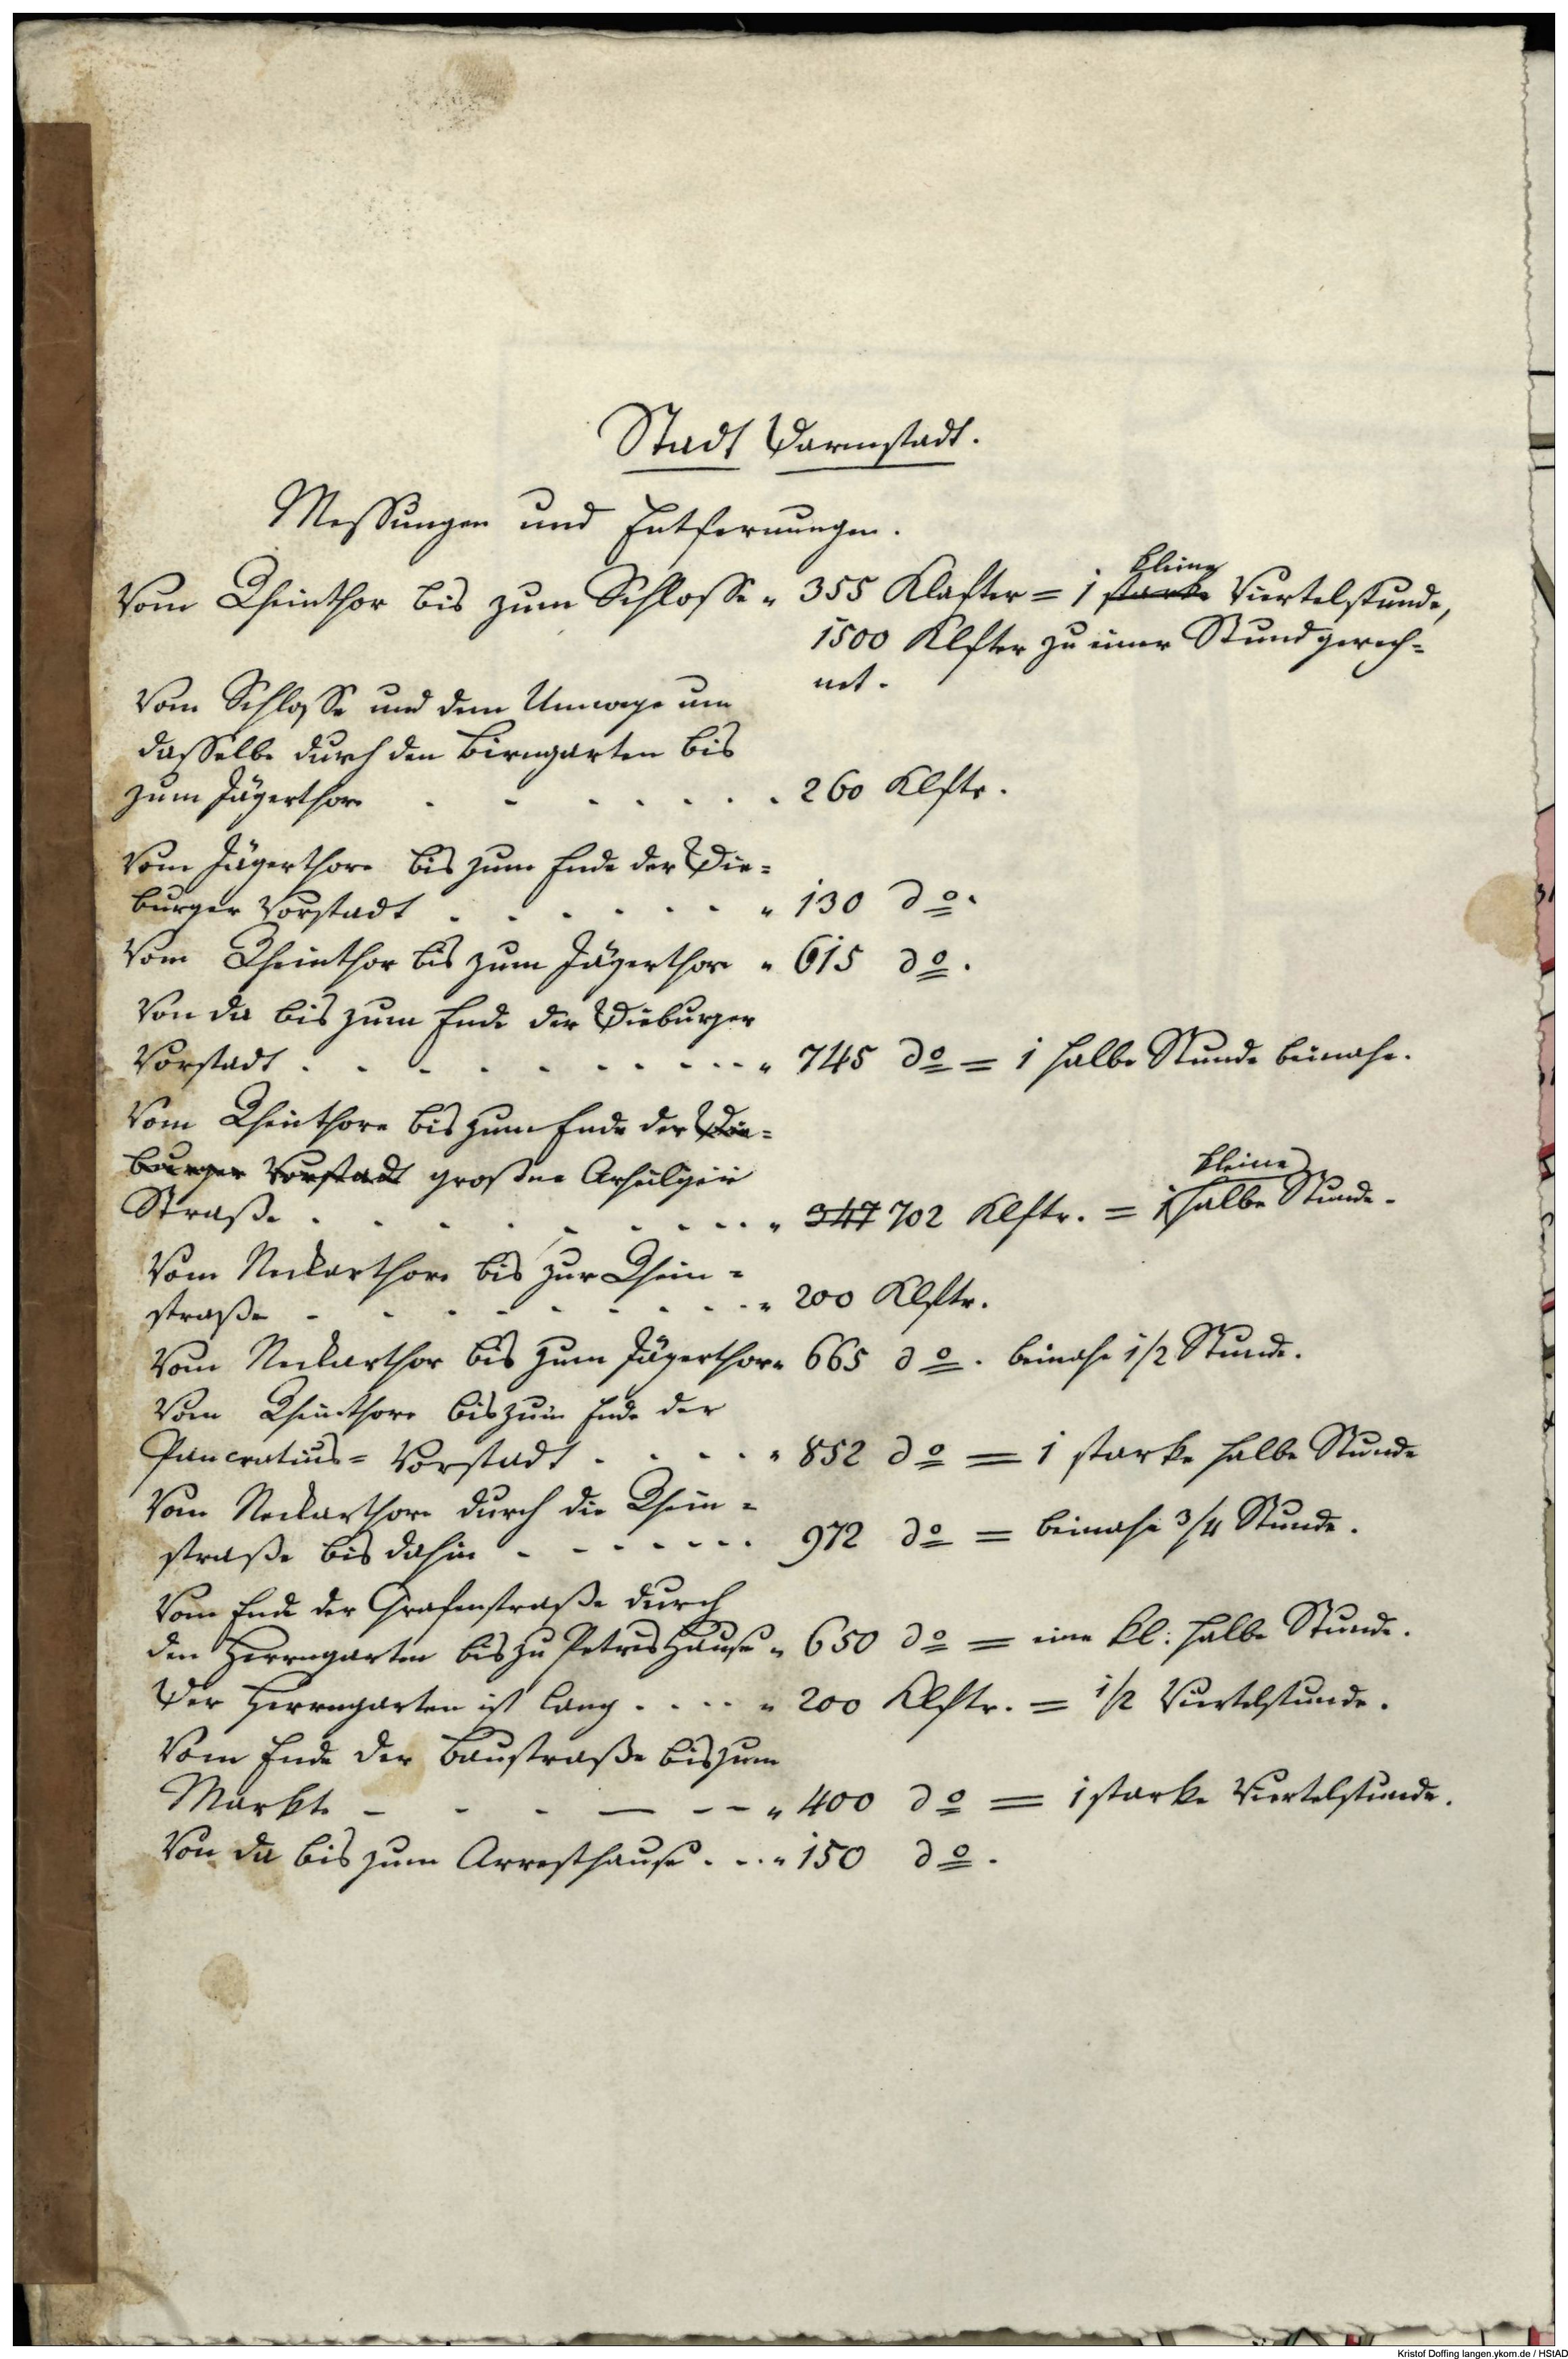 Stadt Darmstadt.
Messungen und Entfernungen.
kleine
Vom Rheinthor bis zum Schlosse " 355 Klafter = 1 starke Viertelstunde,
1500 Klfter zu einer Stund gerech=
net.
Vom Schlosse und dem Umwege um
dasselbe durch den Birngarten bis
zum Jägerthore . . . . . . . 260 Klftr.
Vom Jägerthore bis zum Ende der Die=
burger Vorstadt . . . . . . " 130 do.
Vom Rheinthor bis zum Jägerthore " 615 do.
Von da bis zum Ende der Dieburger
Vorstadt . . . . . . . . . . " 745 do = 1 halbe Stunde beinahe.
Vom Rheinthore bis zum Ende der Die=
burger Vorstadt großen
kleine
Straße . . . . . . . . . " 347 702 Klftr. = 1 halbe Stunde.
Vom Neckarthore bis zur Rhein=
straße . . . . . . . . . " 200 Klftr.
Vom Neckarthor bis zum Jägerthore 665 do. beinahe 1/2 Stunde.
Vom Rheinthore bis zum Ende der
Pancratius= Vorstadt . . . . . " 852 do = 1 starke halbe Stunde
Vom Neckarthore durch die Rhein=
straße bis dahin - - - - - - - 972 do = beinahe 3/4 Stunde.
Vom Ende der Grafenstraße durch
den Herrngarten bis zu Petris Hause " 650 do = eine kl: halbe Stunde.
Der Herrngarten ist lang . . . . " 200 Klftr. = 1/2 Viertelstunde.
Vom Ende der Baustraße bis zum
Markte - - - — - - " 400 do = 1 starke Viertelstunde.
Von da bis zum Arresthause . . . " 150 do.
Kristof Doffing langen.ykom.de / HStAD